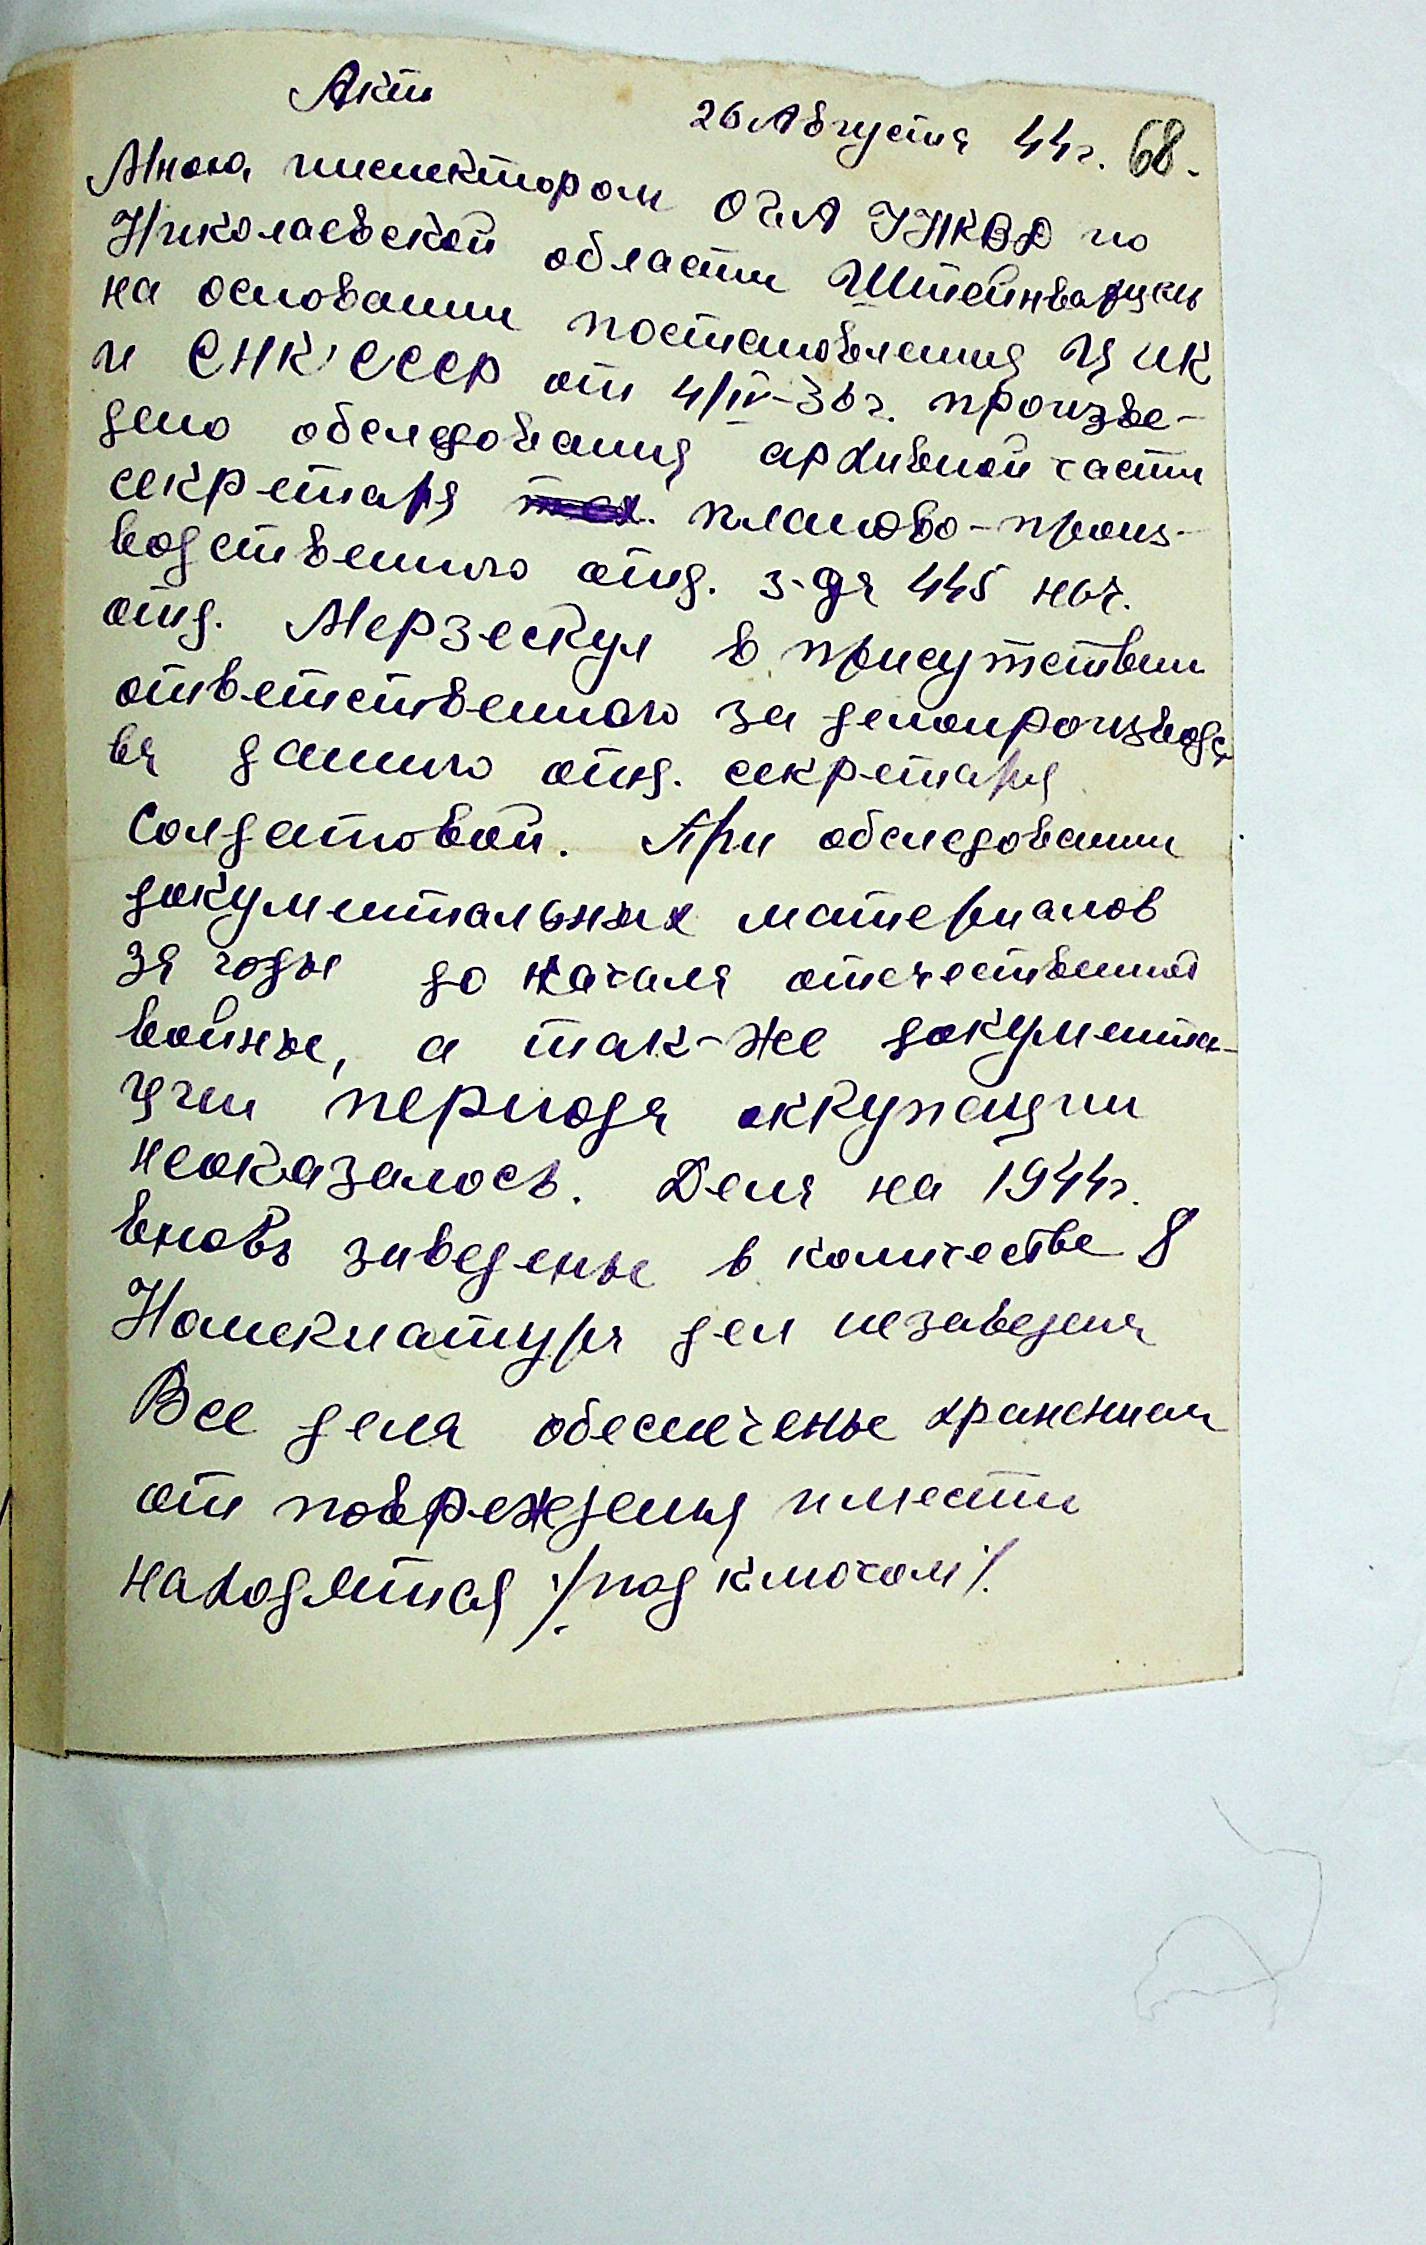 Акт
26 Августа 44г. 68.
Мною, инспектором ОГА УНКВД по
Николаевской области Штейнварцем
на основании постановления ЦИК
и СНК СССР от 4/IV-36г. произве-
дено обследования архивной части
секретаря тех. планово-произ-
водственного отд. з-да 445 нач.
отд. Мерзескул в присутствии
ответственного за делопроизводс
ва данного отд. секретаря
Солдатовой. При обследовании
документальных материалов
за годы до начала отечественной
войны, а так-же документа-
ции периода оккупации
неоказалось. Дела на 1944г.
вновь заведены в количестве 8
Номеклатура дел незаведена
Все дела обеспечены хранением
от повреждения
находятся /под ключом/.